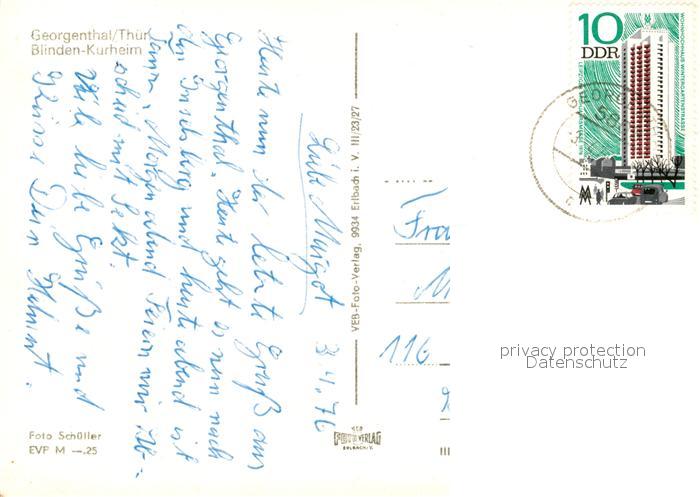 Georgenthal/Thür.
Blinden-Kurheim
Liebe Margot 3.4.76
Heute nun der letzte Gruß aus
Georgenthal. Heute geht es nun nach
dem Inselsberg und heute abend ist
Tanz. Morgen abend feiern wir Ab-
schied mit Sekt.
Viele liebe Grüße und
Küsse Dein Helmut.
Foto Schüller
EVP M —.25
VEB-Foto-Verlag, 9934 Erlbach i. V. III/23/27
VEB
FOTO VERLAG
ERLBACH/V.
Fra
M
116
III
10
DDR
WOHNHOCHHAUS WINTERGARTENSTRASSE
LEIPZIGER FRÜHJAHRSMESSE 1976
MM
privacy protection
Datenschutz